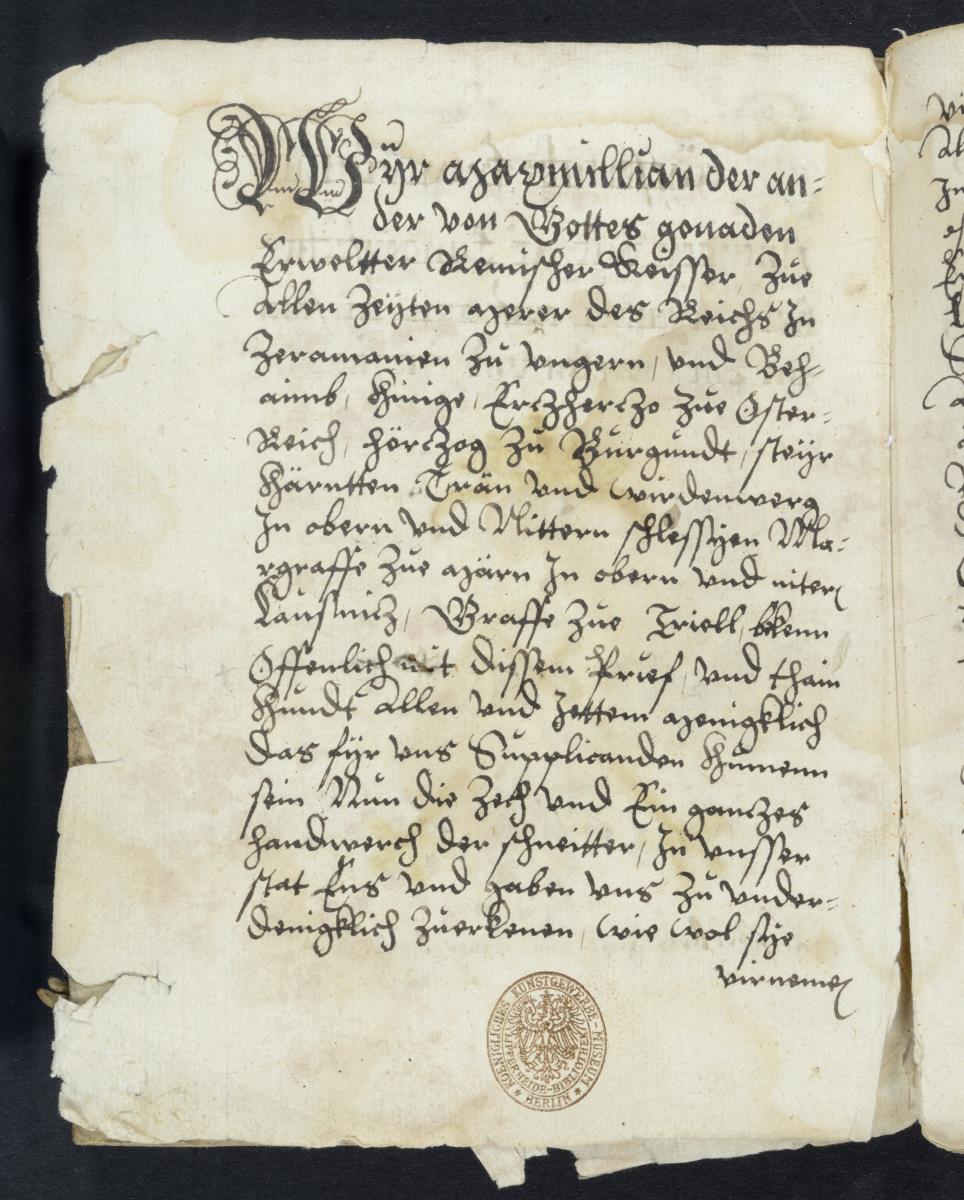 Wÿr Maxmilluan der an=
der von Gottes genaden
Erweltter Remischer Keisser Zue
allen Zeÿten merer des Reichs In
Zeramanien Zu vngern, und Beh=
aimb, Kinige, Erczherczo Zue Oster=
Reich, hörczog Zu Burgundt, steÿr
Kärntten Crän vnd wirdenwerg
In obern vnd Nittern schlessÿen Ma=
rgraffe Zue märn In obern vnd niter
Lausnicz, Graffe Zue Triell, bkenn
Offenlich mit dissem Prief, vnd thain
Kundt allen vnd Jettem menigklich
das fÿr vns Supplicanden Kumenn
sein Nun die Zech vnd Ein ganczes
handwerch der schneitter, In vnsser
stat Ens vnd haben vns Zu vnder=
denigklich Zuerkenen, wie wol sÿe
virnemen
KOENIGLICHES KUNSTGEWERBE-MUSEUM
LIPPERHEIDE-BIBLIOTHEK
BERLIN